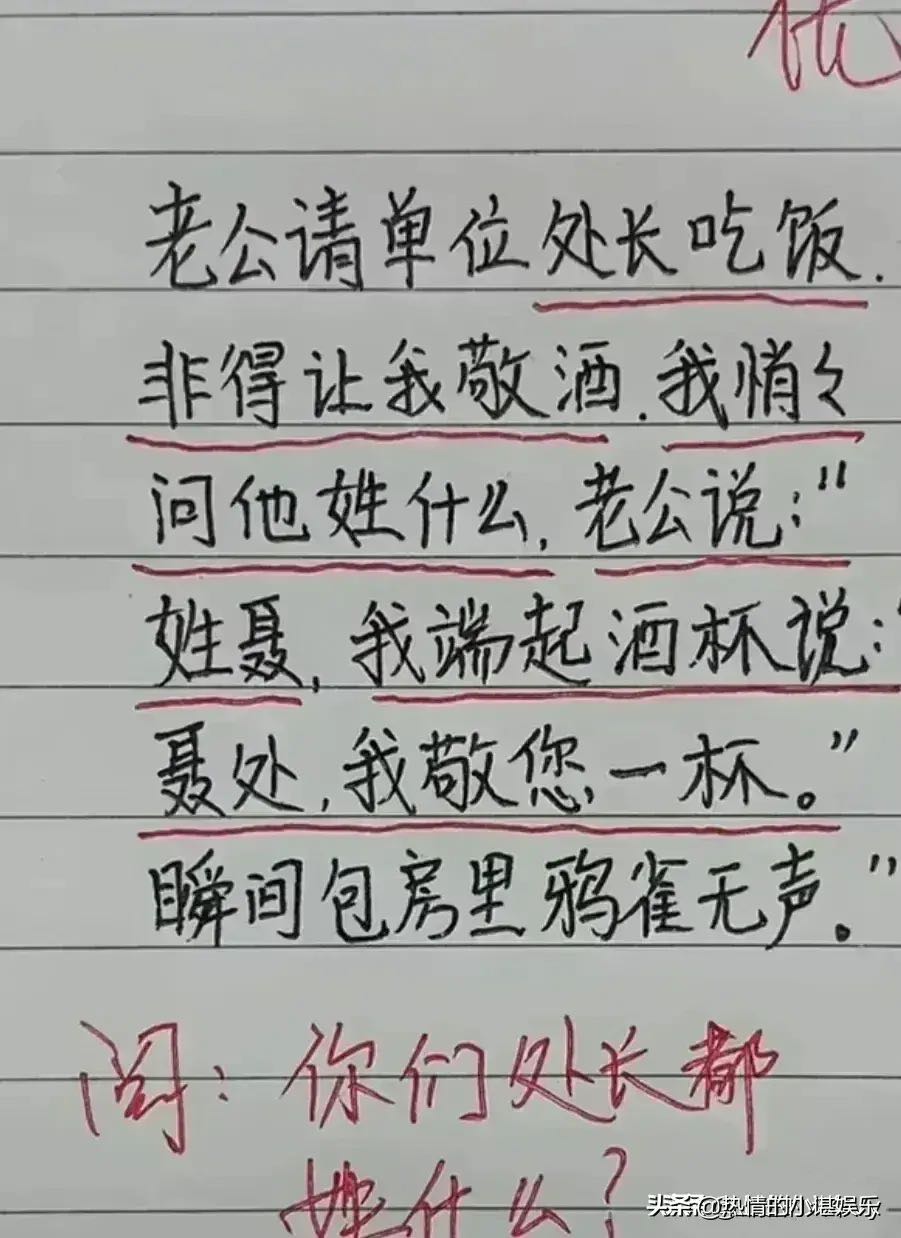 优
老公请单位处长吃饭.
非得让我敬酒.我悄々
问他姓什么,老公说:"
姓聂,我端起酒杯说:"
聂处,我敬您一杯。"
瞬间包房里鸦雀无声。"
阅:你们处长都
姓什么?
头条@热情的小堪娱乐